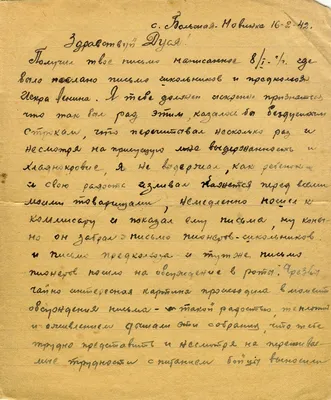 с. Большая-Новинка 16-2-42.
Здравствуй Дуся!
Получил твое письмо написанное 8/I- с/г. где
было послано письмо школьников и председателя
Искра Ленина. Я тебе должен искренно признаться
что так был рад этим, казалось бы
строкам, что перечитывал несколько раз и
несмотря на присущую мне выдержанность и
хладнокровие, я не выдержал, как ребенок
и свою радость изливал перед всеми
моими товарищами, немедленно пошел к
комиссару и показал ему письма, ну конеч
но он забрал письмо пионеров-школьников
и письмо предколхоза и тут же письмо
пионеров пошло на обсуждение в роты. Чрезвы
чайно интересная картина происходила в момент
обсуждения письма - такой радостью, теплотой
и оживлением дышали эти собрания, что тебе
трудно представить и несмотря на пережива-
емые трудности с питанием бойцы выносили